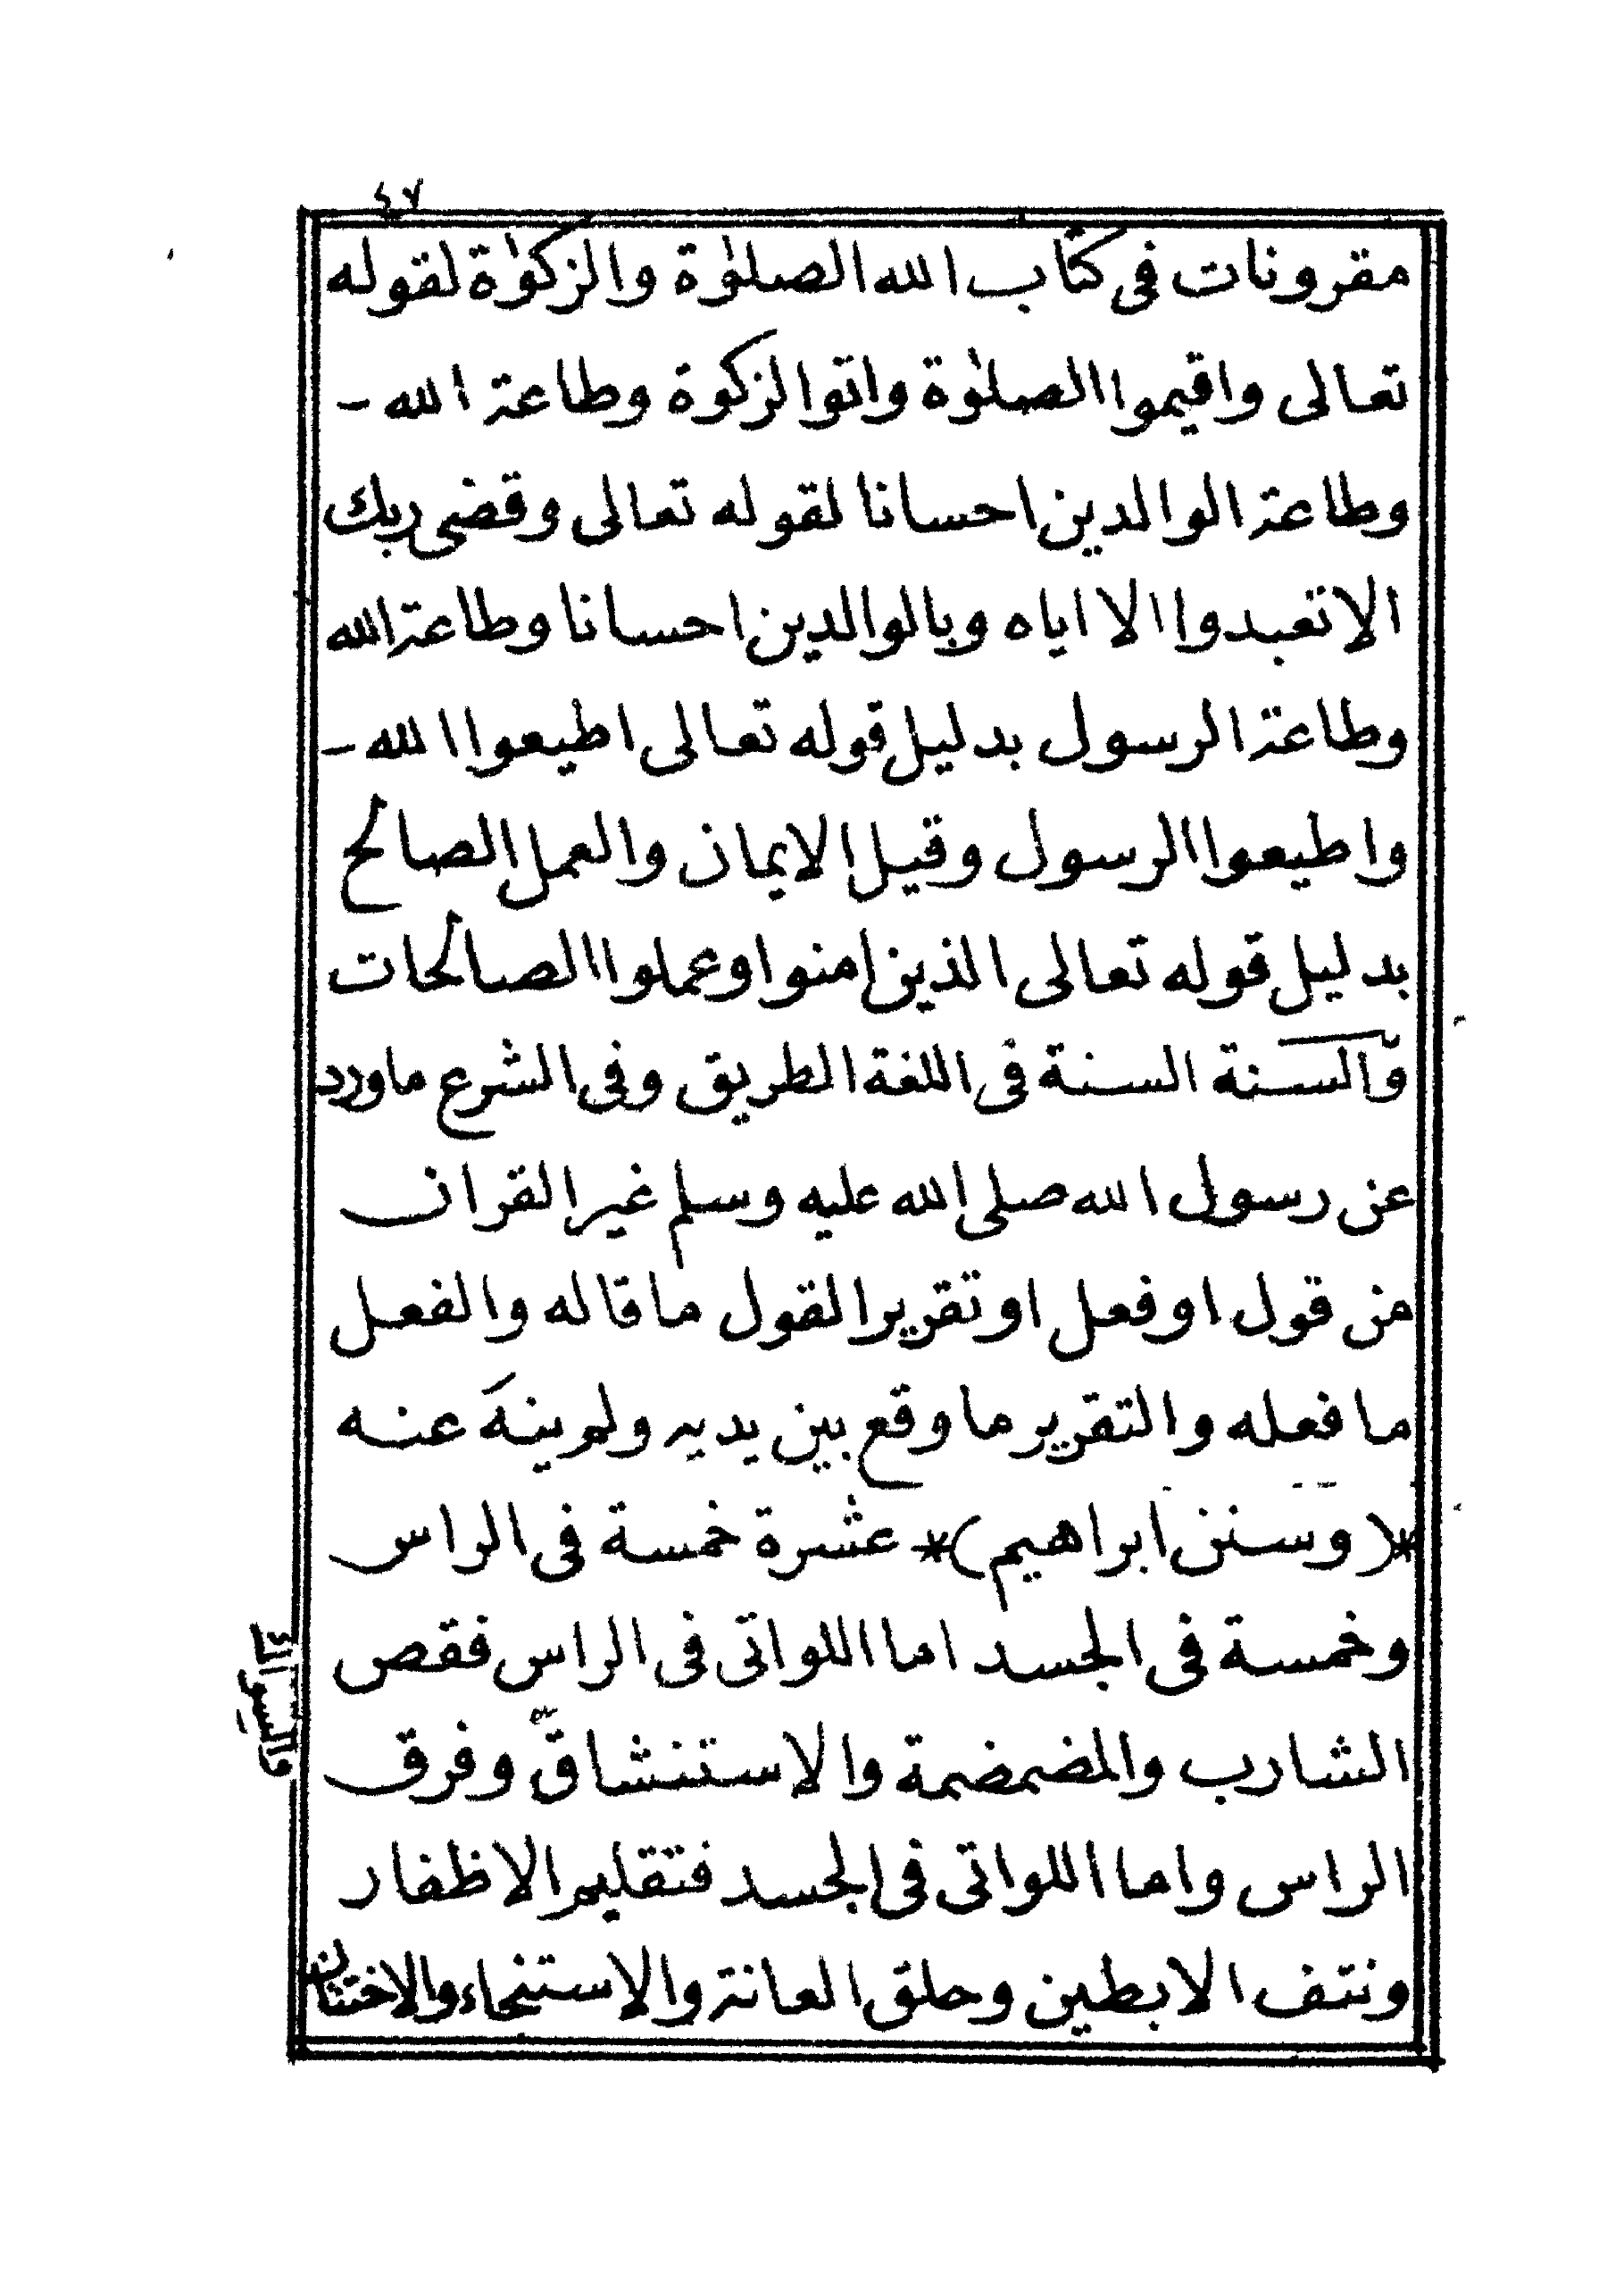 ٤٧
مقرونات فى كتاب الله الصلوٰة والزكوٰة لقوله
تعالى واقيموا الصلوٰة واتوا الزكوة وطاعة الله -
وطاعة الوالدين احسانا لقوله تعالى وقضى ربك
الا تعبدوا الا اياه وبالوالدين احسانا وطاعة الله
وطاعة الرسول بدليل قوله تعالى اطيعوا الله -
واطيعوا الرسول وقيل الايمان والعمل الصالح
بدليل قوله تعالى الذين امنوا وعملوا الصالحات
والسنة السنة فى اللغة الطريق وفى الشرع ما ورد
عن رسول الله صلى الله عليه وسلم غير القران
من قول او فعل او تقرير القول ما قاله والفعل
ما فعله والتقرير ما وقع بين يديه ولم ينهَ عنه
*( وسنن ابراهيم )* عشرة خمسة فى الراس
وخمسة فى الجسد اما اللواتى فى الراس فقص
الشارب والمضمضة والاستنشاق وفرق
الراس واما اللواتى فى الجسد فتقليم الاظفار
ونتف الابطين وحلق العانة والاستنجاء والاختتان
والسواك